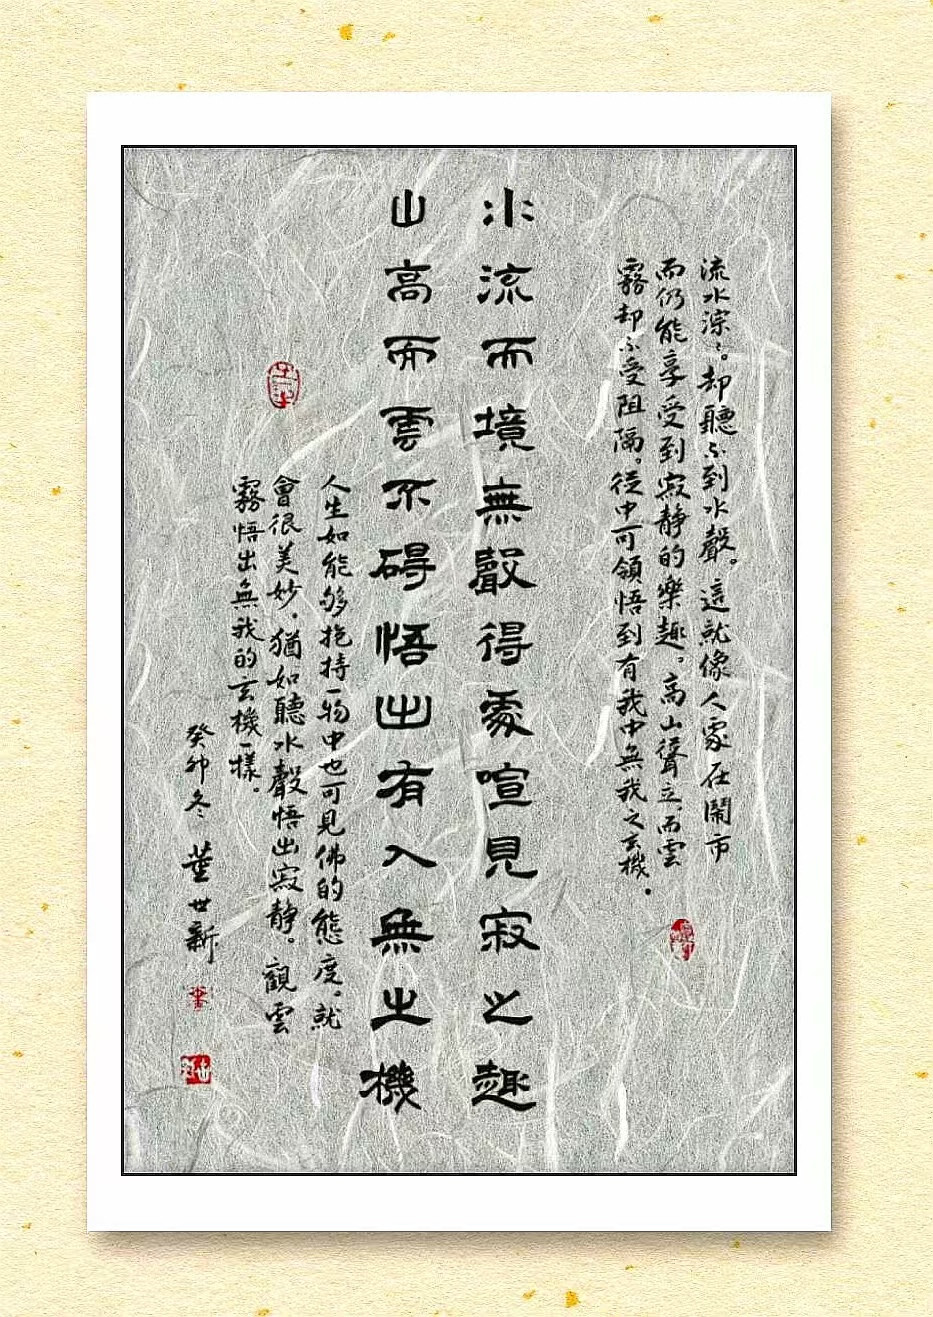 流水淙々。却聽不到水聲。這就像人處在鬧市
而仍能享受到寂静的樂趣。高山聳立而雲
霧却不受阻隔。從中可領悟到有我中無我之玄機。
水流而境無聲得處喧見寂之趣
山高而雲不碍悟出有入無之機
人生如能够抱持一物中也可見佛的態度。就
會很美妙。猶如聽水聲悟出寂静。觀雲
霧悟出無我的玄機一樣。
癸卯冬 董世新